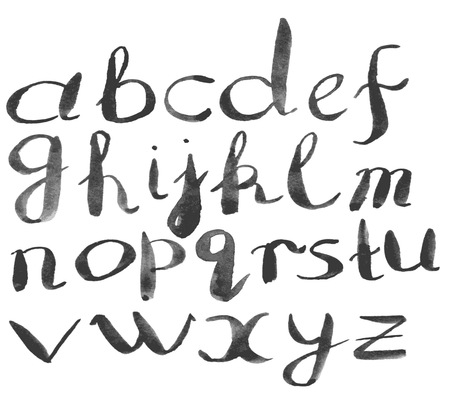 abcdef
ghijklm
nopqrstu
vwxyz